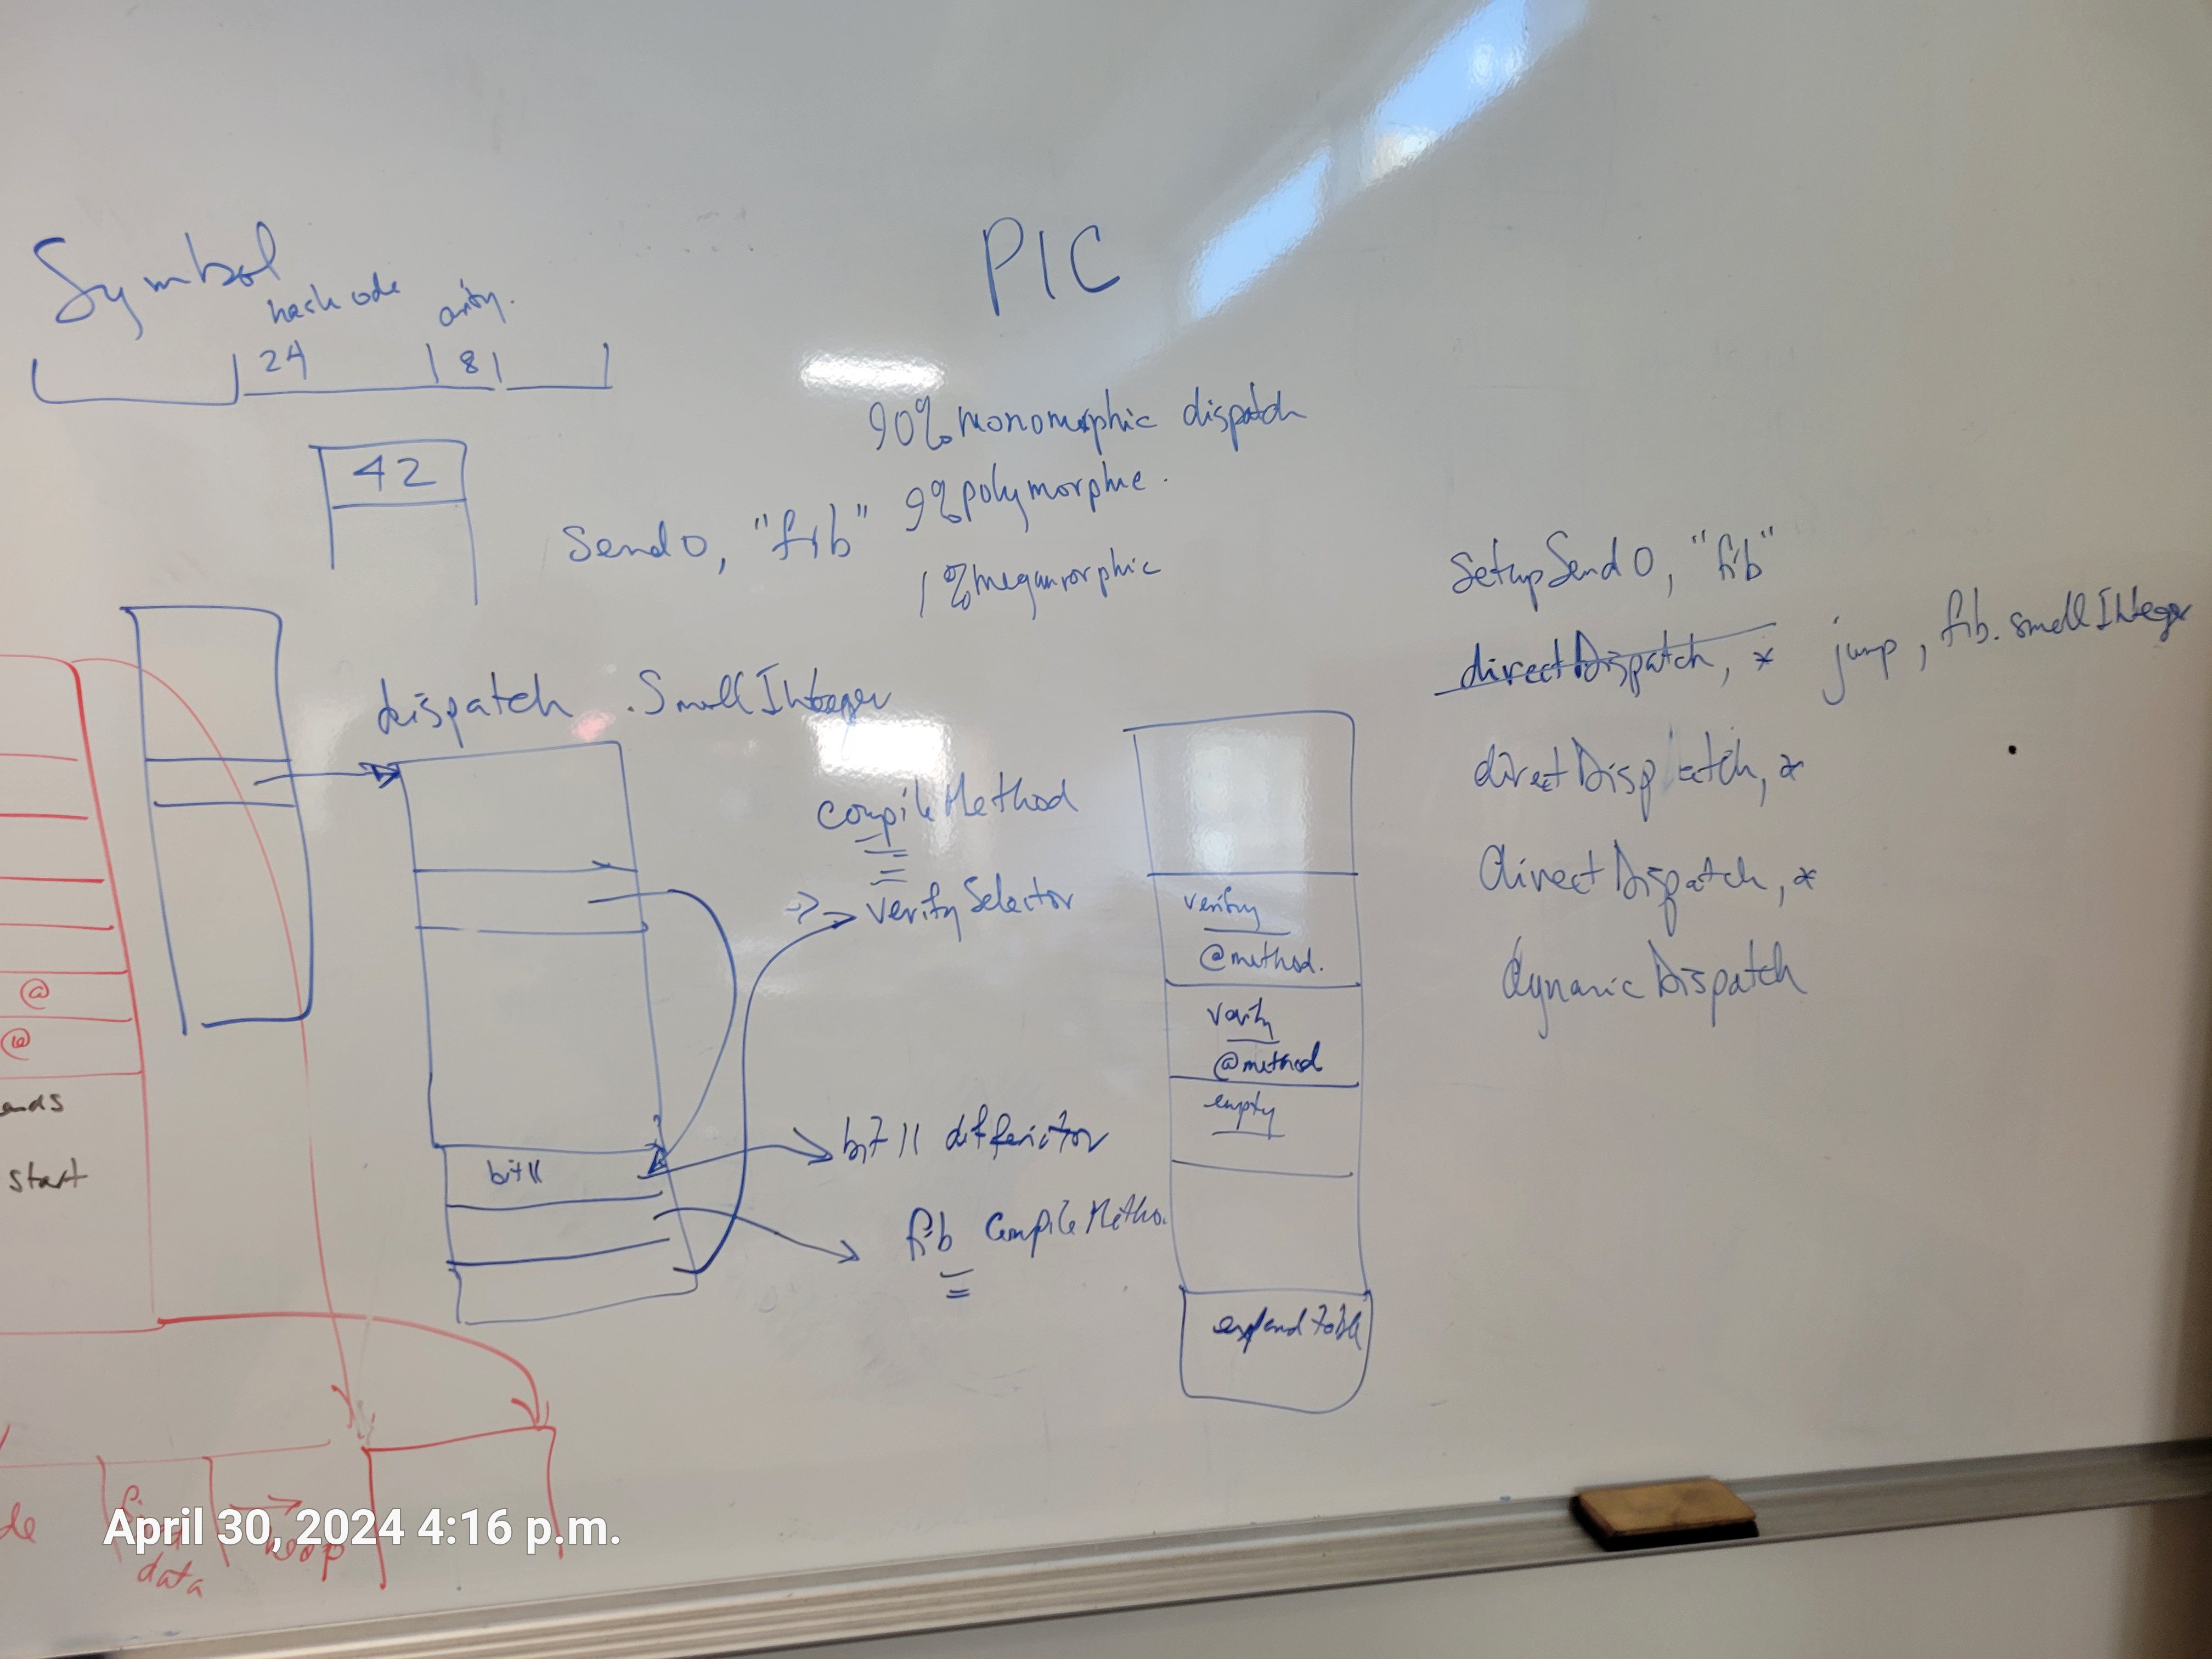 Symbol
hashcode arity.
24 8
PIC
42
90% monomorphic dispatch
9% polymorphic.
1% megamorphic
Send0, "fib"
dispatch .SmallInteger
compileMethod
verifySelector
bit11
bit11
fib CompileMetho.
verify
@method.
verify
@method
empty
expand table
SetupSend0, "fib"
directDispatch, * jump, fib.smallInteger
directDispatch, *
directDispatch, *
dynamicDispatch
@
@
ends
start
de
data
heap
April 30, 2024 4:16 p.m.